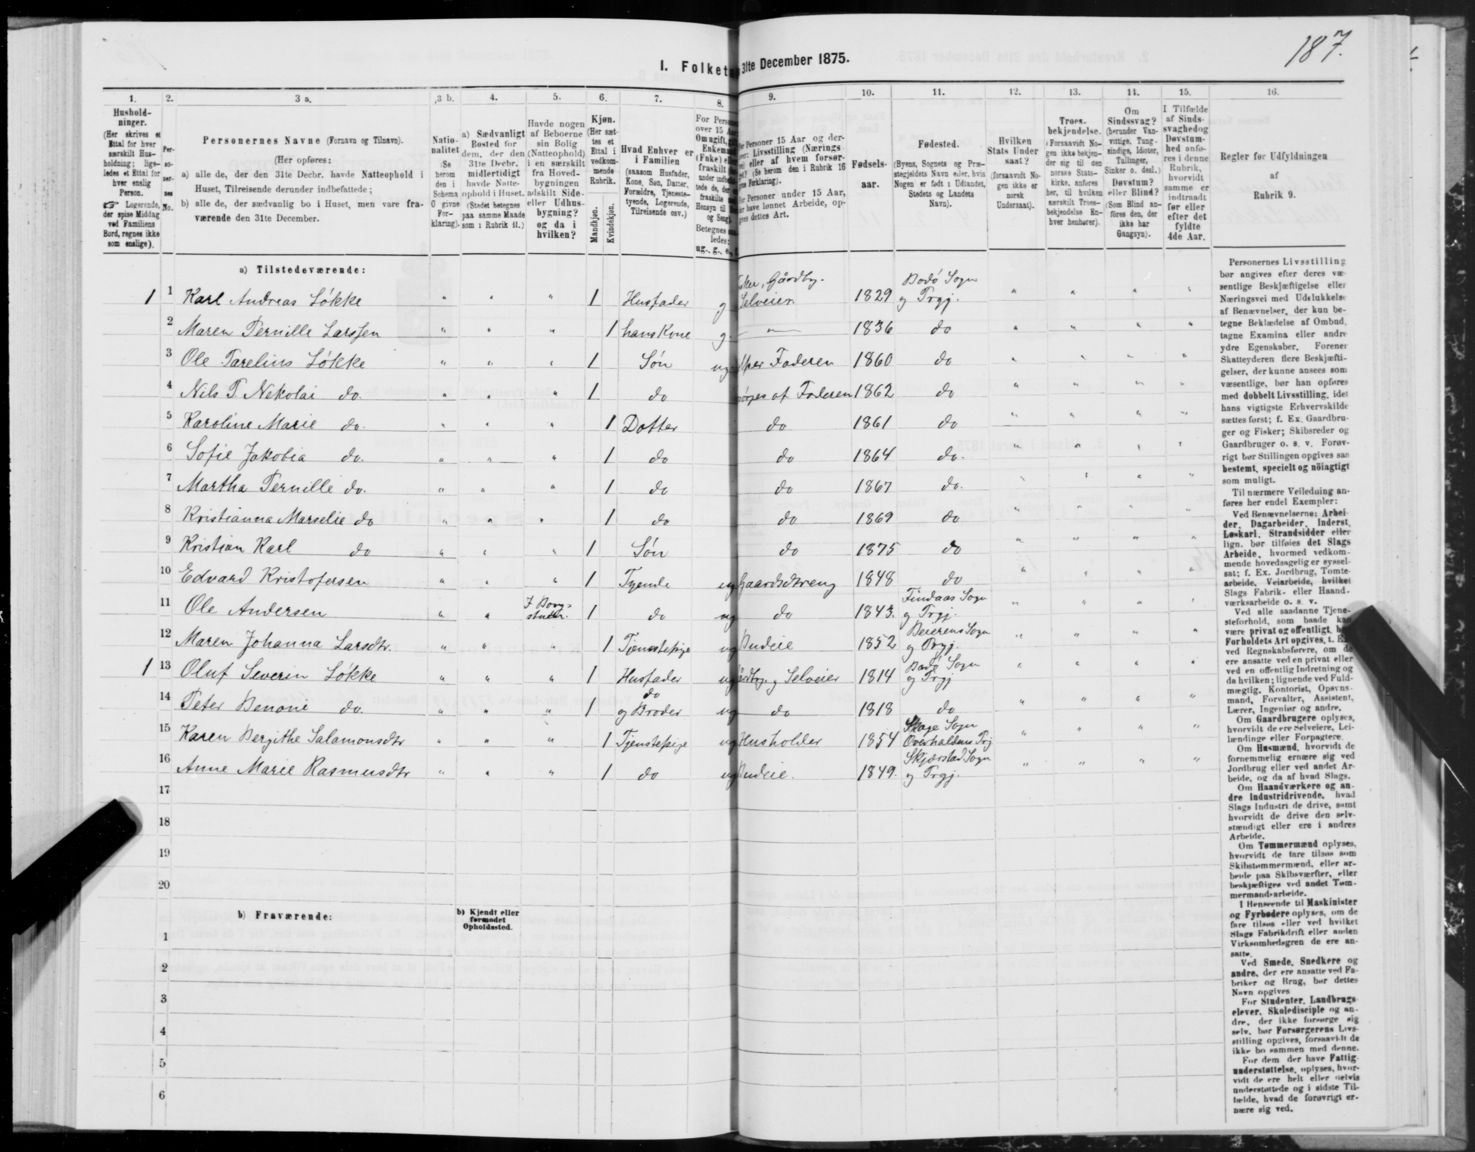 187.
I. Folket 31te December 1875.
1. 2. 3 a. 3 b. 4. 5. 6. 7. 8. 9. 10. 11. 12. 13. 14. 15. 16.
Hushold-
ninger.
(Her skrives et
Ettal for hver
særskilt Hus-
holdning; lige-
ledes et Ettal for
hver enslig
Person.
☞ Logerende,
der spise Middag
ved Familiens
Bord, regnes ikke
som enslige).
Per-
so-
ner-
nes
No.
Personernes Navne (Fornavn og Tilnavn).
(Her opføres:
a) alle de, der den 31te Decbr. havde Natteophold i
Huset, Tilreisende derunder indbefattede;
b) alle de, der sædvanlig bo i Huset, men vare fra-
værende den 31te December.
Natio-
nalitet
(Se
herom
den i
Schema
O givne
For-
klaring).
a) Sædvanligt
Bosted for
dem, der den
31te Decbr.
midlertidigt
havde Natte-
ophold i Huset.
(Stedet betegnes
paa samme Maade
som i Rubrik 11.)
Havde nogen
af Beboerne
sin Bolig
(Natteophold)
i en særskilt
fra Hoved-
bygningen
adskilt Side-
eller Udhus-
bygning?
og da i
hvilken?
Kjøn.
(Her sæt-
tes et
Ettal i
vedkom-
mende
Rubrik.
Mandkjøn.
Kvindekjøn.
Hvad Enhver er
i Familien
(saasom Husfader,
Kone, Søn, Datter,
Forældre, Tjeneste-
tyende, Logerende,
Tilreisende osv.)
For Person
over 15 Aa
Om ugift, g
Enkema
(Fnke) el
fraskilt
under indb
Personer 15 Aar og der-
Livsstilling (Nærings-
eller af hvem forsør-
get? (Se herom den i Rubrik 16
Forklaring).
Personer under 15 Aar,
have lønnet Arbeide, op-
gives dettes Art.
Fødsels-
aar.
Fødested.
(Byens, Sognets og Præ-
stegjeldets Navn eller, hvis
Nogen er født i Udlandet,
Stedets og Landets
Navn).
Hvilken
Stats Under
saat?
(forsaavidt No-
gen ikke er
norsk
Undersaat).
Troes-
bekjendelse.
(Forsaavidt No-
gen ikke bekjen-
der sig til den
norske Stats-
kirke, anføres
her, til hvilken
særskilt Troes-
bekjendelse En-
hver henhører).
Om
Sindssvag?
(herunder Van-
vittige, Tung-
sindige, Idioter,
Tullinger,
Sinker o. desl.)
Døvstum?
eller Blind?
(Som Blind an-
føres den, der
ikke har
Gangsyn).
I Tilfælde
af Sinds-
svaghedog
Døvstum-
hed anfø-
res i denne
Rubrik,
hvorvidt
samme er
indtraadt
før eller
efter det
fyldte
4de Aar.
Regler for Udfyldningen
af
Rubrik 9.
a) Tilstedeværende:
1 1 Karl Andreas Løkke " " " 1 Husfader g Gårdby. Selveier 1829 Bodø Sogn og Prgj. " " " "
2 Maren Pernille Larssen " " " 1 hans Kone g. — " — 1836 do " " " "
3 Ole Parelius Løkke " " " 1 Søn ug Faderen 1860 do " " " "
4 Nils P. Nekolai do. " " " 1 do af Faderen 1862 do " " " "
5 Karoline Marie do. " " " 1 Dotter do 1861 do " " " "
6 Sofie Jakobea do. " " " 1 do do 1864 do. " " " "
7 Martha Pernille do. " " " 1 do do 1867 do. " " " "
8 Kristianna Marselie do " " " 1 do do 1869 do " " " "
9 Kristian Karl do " " " 1 Søn do 1875 do " " " "
10 Edvard Kristofersen " " " 1 Tyende ug Gaardsdreng 1848 do " " " "
11 Ole Andersen " " I Borg= stuen. 1 do ug do 1843. Findaas Sogn og Prgj. " " " "
12 Maren Johanna Larsdtr. " " " 1 Tjenestepige ug Budeie 1852 Beierens Sogn og Prgj. " " " "
1 13 Oluf Severin Løkke " " " 1 Husfader ug Gårdby. og Selveier 1814 Bodø Sogn og Prgj " " " "
14 Peter Benoni do. " " " 1 do og Broder ug do 1818 do " " " "
15 Karen Bergithe Salamonsdtr " " " 1 Tjenstepige ug Husholder 1854 Skage Sogn Overhaldens Prgj " " " "
16 Anne Marie Rasmusdtr " " " 1 do ug Budeie. 1849. Skjærstad Sogn og Prgj. " " " "
17
18
19
20
b) Fraværende:
b) Kjendt eller
formodet
Opholdssted.
1
2
3
4
5
6
Personernes Livsstilling
bør angives efter deres væ-
sentlige Beskjæftigelse eller
Næringsvei med Udelukkelse
af Benævnelser, der kun be-
tegne Beklædelse af Ombud,
tagne Examina eller andre
ydre Egenskaber. Forener
Skatteyderen flere Beskjæfti-
gelser, der kunne ansees som
væsentlige, bør han opføres
med dobbelt Livsstilling, idet
hans vigtigste Erhvervskilde
sættes først; f. Ex. Gaardbru-
ger og Fisker; Skibsreder og
Gaardbruger o. s. v. Forøv-
rigt bør Stillingen opgives saa
bestemt, specielt og nöiagtigt
som muligt.
Til nærmere Veiledning an-
føres her endel Exempler:
Ved Benævnelserne: Arbei-
der, Dagarbeider, Inderst,
Løskarl, Strandsidder eller
lign. bør tilføies det Slags
Arbeide, hvormed vedkom-
mende hovedsagelig er syssel-
sat; f. Ex. Jordbrug, Tomte-
arbeide, Veiarbeide, hvilket
Slags Fabrik- eller Haand-
værksarbeide o. s. v.
Ved alle saadanne Tjene-
steforhold, som baade kan
være privat og offentligt,
Forholdets Art opgives,
ved Regnskabsførere, om de
ere ansatte ved en privat eller
ved en offentlig Indretning og
da hvilken; lignende ved Fuld-
mægtig, Kontorist, Opsyns-
mand, Forvalter, Assistent,
Lærer, Ingeniør og andre.
Om Gaardbrugere oplyses,
hvorvidt de ere Selveiere, Lei-
lændinge eller Forpagtere.
Om Husmænd, hvorvidt de
fornemmelig ernære sig ved
Jordbrug eller ved andet Ar-
beide, og da af hvad Slags.
Om Haandværkere og an-
dre Industridrivende, hvad
Slags Industri de drive, samt
hvorvidt de drive den selv-
stændigt eller ere i andres
Arbeide.
Om Tømmermænd oplyses,
hvorvidt de fare tilsøs som
Skibstømmermænd, eller ar-
beide paa Skibsværfter, eller
beskjæftiges ved andet Tøm-
mermandsarbeide.
I Henseende til Maskinister
og Fyrbødere oplyses, om de
fare tilsøs eller ved hvilket
Slags Fabrikdrift eller anden
Virksomhedsgren de ere an-
satte.
Ved Smede, Snedkere og
andre, der ere ansatte ved Fa-
briker og Brug, bør dettes
Navn opgives
For Studenter, Landbrugs-
elever, Skoledisciple og an-
dre, der ikke forsørge sig
selv, bør Forsørgerens Livs-
stilling opgives, forsaavidt de
ikke bo sammen med denne.
For dem, der have Fattig-
understøttelse, oplyses, hvor-
vidt de ere helt eller delvis
understøttede og i sidste Til-
fælde, hvad de forøvrigt er-
nære sig ved.